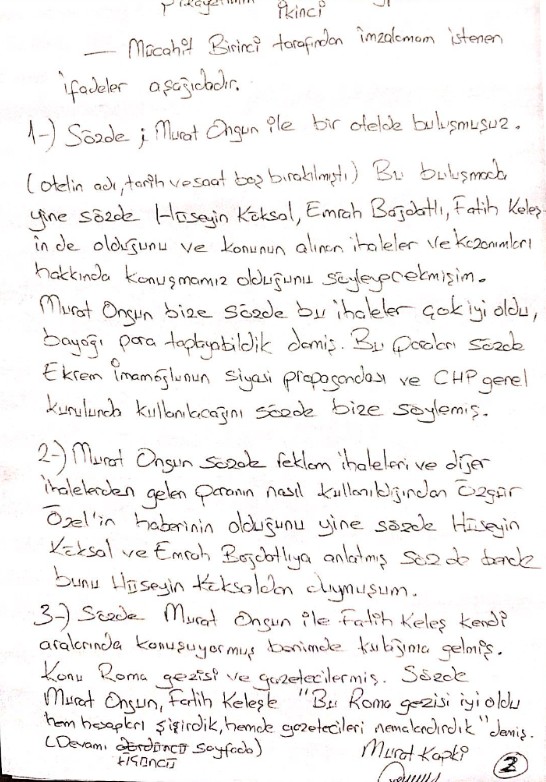 İkinci
— Mücahit Birinci tarafından imzalamam istenen
ifadeler aşağıdadır.
1-) Sözde ; Murat Ongun ile bir otelde buluşmuşuz.
(otelin adı, tarih ve saat boş bırakılmıştı) Bu buluşmada
yine sözde Hüseyin Köksal, Emrah Bağdatlı, Fatih Keleş
in de olduğunu ve konunun alınan ihaleler ve kazanımları
hakkında konuşmamız olduğunu söyleyecekmişim.
Murat Ongun bize sözde bu ihaleler çok iyi oldu,
bayağı para toplayabildik demiş. Bu paraları sözde
Ekrem İmamoğlunun siyasi propagandası ve CHP genel
kurulunda kullanılacağını sözde bize söylemiş.
2-) Murat Ongun sözde reklam ihaleleri ve diğer
ihalelerden gelen paranın nasıl kullanıldığından Özgür
Özel'in haberinin olduğunu yine sözde Hüseyin
Köksal ve Emrah Bağdatlıya anlatmış sözde bende
bunu Hüseyin Köksaldan duymuşum.
3-) Sözde Murat Ongun ile Fatih Keleş kendi
aralarında konuşuyormuş benimde kulağıma gelmiş.
Konu Roma gezisi ve gazetecilermiş. Sözde
Murat Ongun, Fatih Keleşe "Bu Roma gezisi iyi oldu
hem hesapları şişirdik, hemde gazetecileri nemalandırdık" demiş.
(Devamı dördüncü sayfada)
üçüncü
Murat Kapki
2